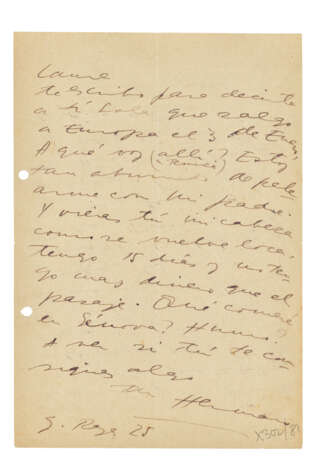 Laura
te escribo para decirte
a tí sola que salgo
a Europa el 3 de Enero
A qué voy allí? Estoy
tan aburrido de pele
arme con mi padre.
Y vieras tú mi cabeza
como se vuelve loca,
tengo 15 días y no ten
go mas dinero que el
pasaje. Qué comeré
en Génova? Humo.
A ver si tú te con
sigues algo
Tu Hermano
G. Rege 25
X300/8